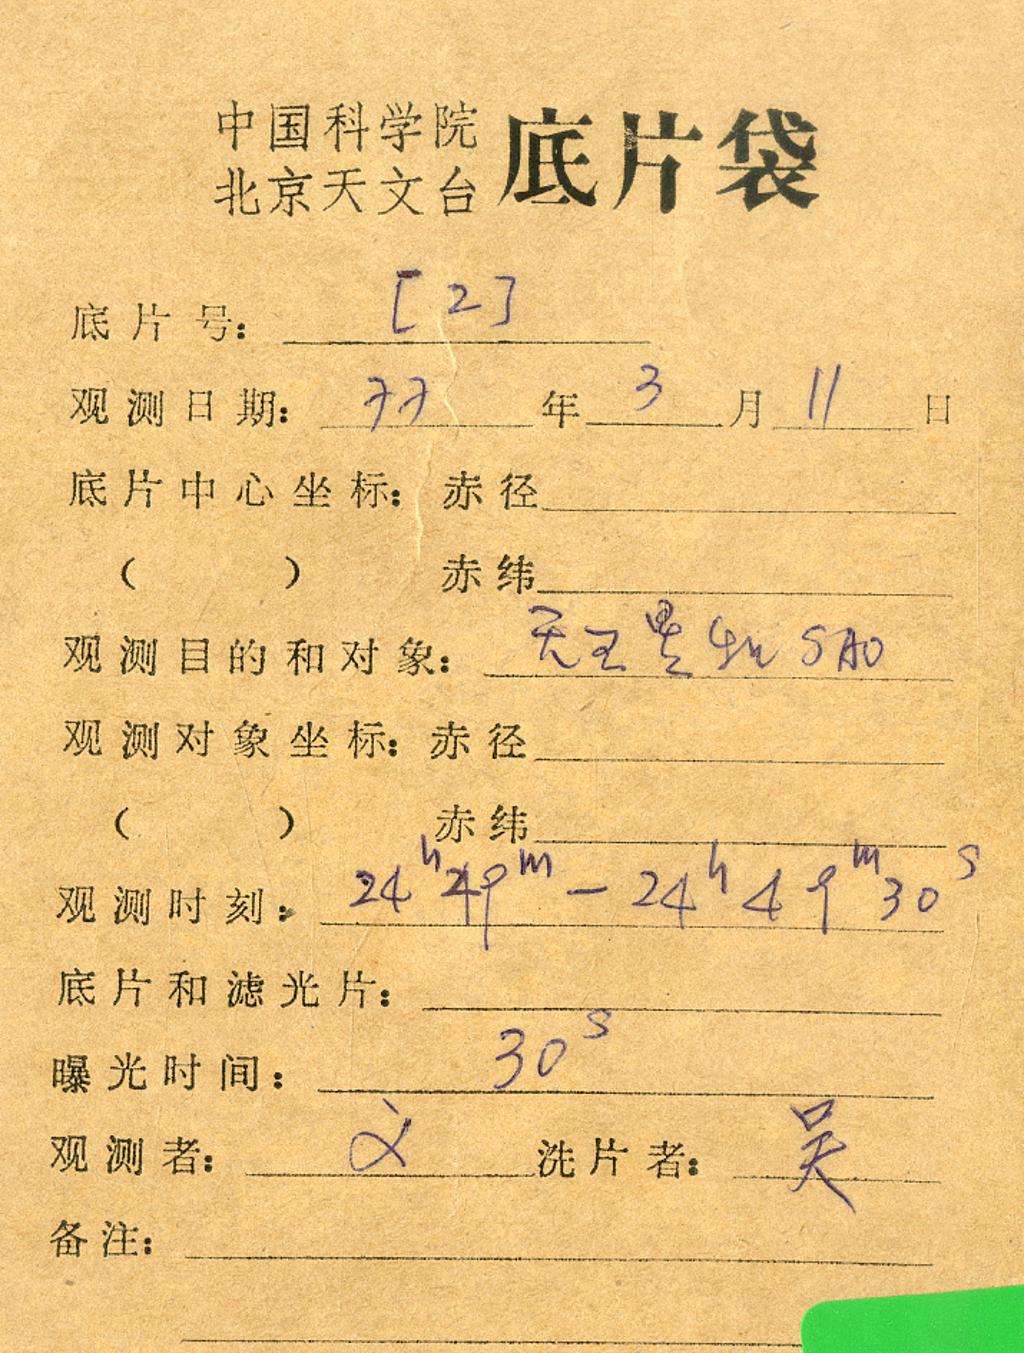 中国科学院
北京天文台 底片袋
底片号: [2]
观测日期: 77 年 3 月 11 日
底片中心坐标: 赤径
( ) 赤纬
观测目的和对象: 天王星 SAO
观测对象坐标: 赤径
( ) 赤纬
观测时刻: 24h49m - 24h49m30s
底片和滤光片:
曝光时间: 30s
观测者: 文 洗片者: 吴
备注: